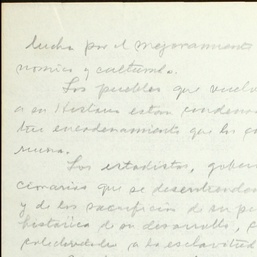 lucha por el mejoramiento
nomico y cultural.
Los pueblos que vuelv
a su Historia estan condena
encadenamiento que los
Los estadistas, gober
cenarios que se desentiendan
y de los sacrificios de su pu
historica de su desarrollo,
a la esclavitud